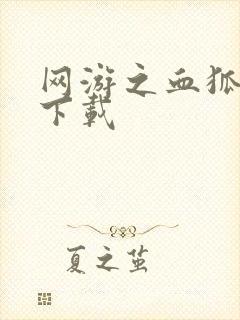 网游之血狐
下载
夏之茧